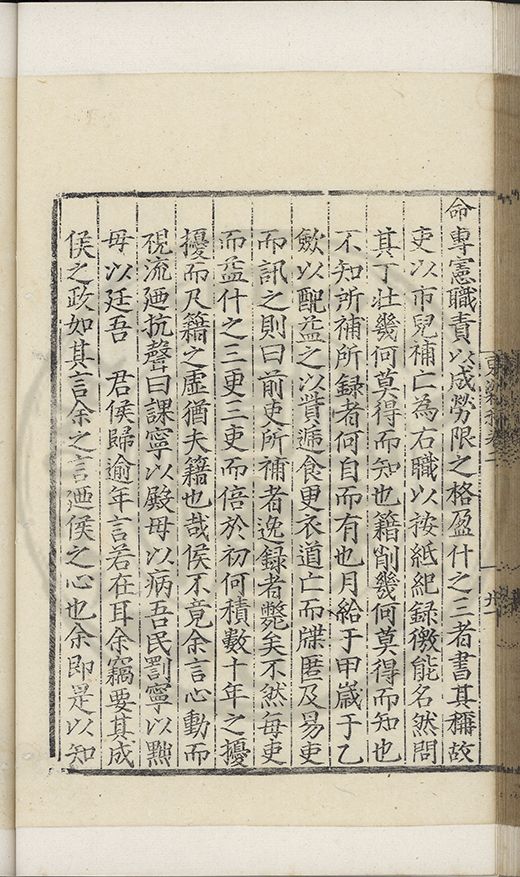 命專憲職責以成勞限之格盈什之三者書其稱故
吏以市兒補亡為右職以按紙紀録徼能名然問
其丁壯幾何莫得而知也籍削幾何莫得而知也
不知所補所録者何自而有也月給于甲歳于乙
斂以配益之以貲遞食更衣道亡而牒匿及易吏
而訊之則曰前吏所補者逸録者斃矣不然每吏
而益什之三更三吏而倍於初何積數十年之擾
擾而尺籍之虛猶夫籍也哉侯不竟余言心動而
視流廼抗聲曰課寧以殿毋以病吾民罰寧以黜
毋以廷吾　君侯歸逾年言若在耳余竊要其成
侯之政如其言余之言廼侯之心也余即是以知